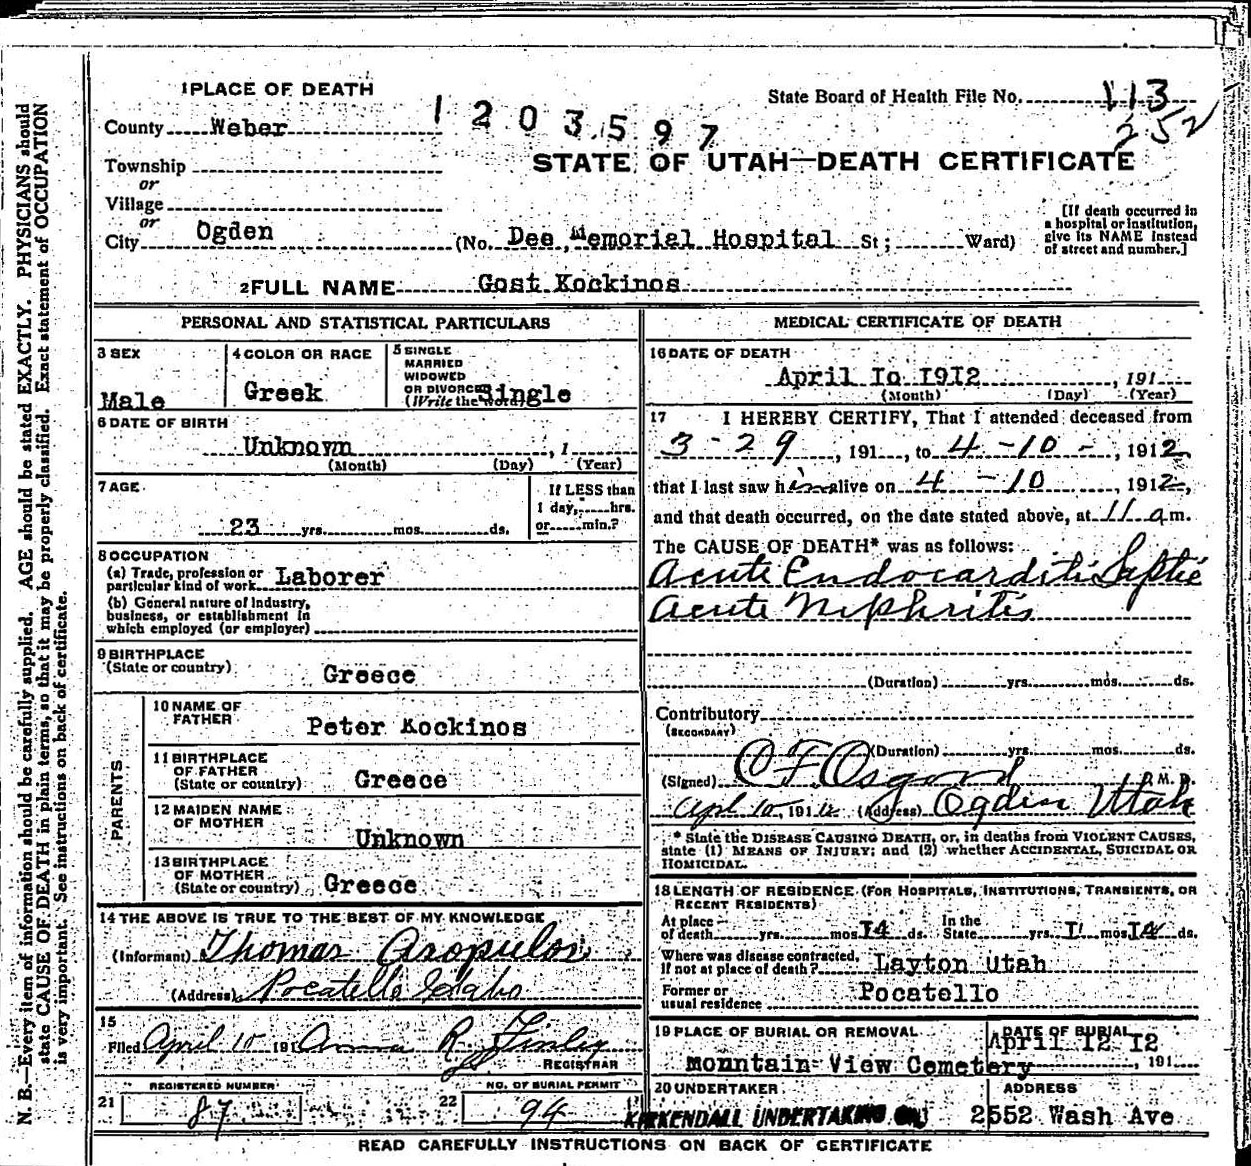 1 PLACE OF DEATH
State Board of Health File No. 113
252
County Weber
1203597
STATE OF UTAH—DEATH CERTIFICATE
Township
or
Village
or
City Ogden (No. Dee Memorial Hospital St; Ward)
[If death occurred in
a hospital or institution,
give its NAME instead
of street and number.]
2 FULL NAME Gost Kockinos
PERSONAL AND STATISTICAL PARTICULARS
3 SEX
Male
4 COLOR OR RACE
Greek
5 SINGLE
MARRIED
WIDOWED
OR DIVORCED
(Write the word)
Single
6 DATE OF BIRTH
Unknown , 1
(Month) (Day) (Year)
7 AGE
23 yrs. mos. ds.
If LESS than
1 day, hrs.
or min.?
8 OCCUPATION
(a) Trade, profession or
particular kind of work Laborer
(b) General nature of industry,
business, or establishment in
which employed (or employer)
9 BIRTHPLACE
(State or country) Greece
PARENTS
10 NAME OF
FATHER Peter Kockinos
11 BIRTHPLACE
OF FATHER
(State or country) Greece
12 MAIDEN NAME
OF MOTHER
Unknown
13 BIRTHPLACE
OF MOTHER
(State or country) Greece
14 THE ABOVE IS TRUE TO THE BEST OF MY KNOWLEDGE
(Informant) Thomas Aropulos
(Address) Pocatello Idaho
15
Filed April 10 191 Anna R Finley
REGISTRAR
REGISTERED NUMBER
21 87
NO. OF BURIAL PERMIT
22 94
MEDICAL CERTIFICATE OF DEATH
16 DATE OF DEATH
April 10 1912 , 191
(Month) (Day) (Year)
17 I HEREBY CERTIFY, That I attended deceased from
3 - 29 , 191 , to 4 - 10 - , 1912,
that I last saw him alive on 4 - 10 , 1912,
and that death occurred, on the date stated above, at 11 a m.
The CAUSE OF DEATH* was as follows:
Acute Endocarditis Septic
Acute Niphritis
(Duration) yrs. mos. ds.
Contributory
(SECONDARY)
(Duration) yrs. mos. ds.
(Signed) O F Osgood , M. D.
Apl 10, 1912 (Address) Ogden Utah
* State the DISEASE CAUSING DEATH, or, in deaths from VIOLENT CAUSES,
state (1) MEANS OF INJURY; and (2) whether ACCIDENTAL, SUICIDAL OR
HOMICIDAL.
18 LENGTH OF RESIDENCE (FOR HOSPITALS, INSTITUTIONS, TRANSIENTS, OR
RECENT RESIDENTS)
At place
of death yrs. mos 14 ds.
In the
State yrs. 1 mos 14 ds.
Where was disease contracted,
If not at place of death? Layton Utah
Former or
usual residence Pocatello
19 PLACE OF BURIAL OR REMOVAL
Monntain View Cemetery
DATE OF BURIAL
April 12 12
, 191
20 UNDERTAKER
KIRKENDALL UNDERTAKING CO.
ADDRESS
2552 Wash Ave
READ CAREFULLY INSTRUCTIONS ON BACK OF CERTIFICATE
N. B.—Every item of information should be carefully supplied. AGE should be stated EXACTLY. PHYSICIANS should
state CAUSE OF DEATH in plain terms, so that it may be properly classified. Exact statement of OCCUPATION
is very important. See instructions on back of certificate.